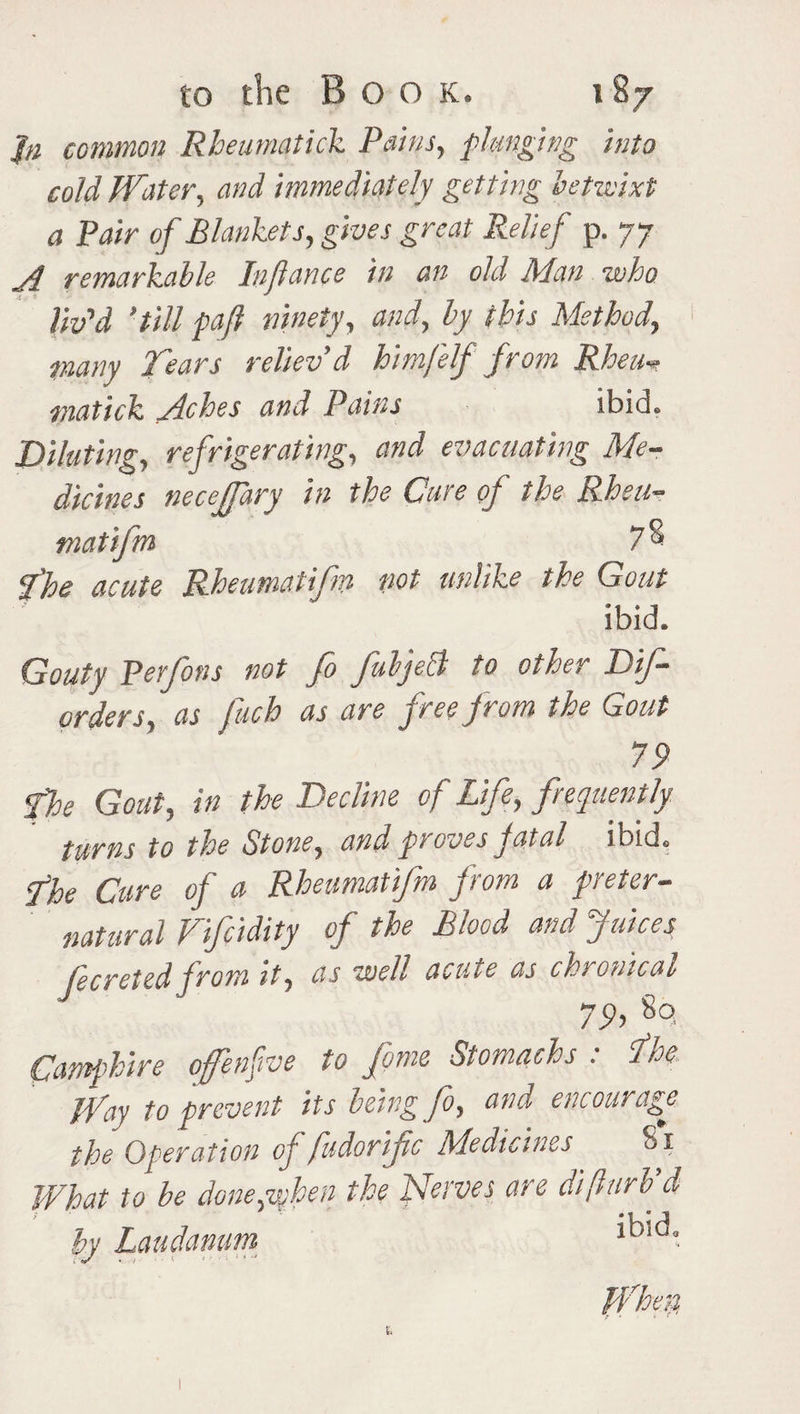 to the BOOK. 187
In common Rheumatick Pains, plunging into
cold Water, and immediately getting betwixt
a Pair of Blankets, gives great Relief p. 77
A remarkable Inſtance in an old Man who
liv'd 'till paſt ninety, and, by this Method,
many Years reliev'd himſelf from Rheu-
matick Aches and Pains ibid.
Diluting, refrigerating, and evacuating Me-
dicines neceſſary in the Cure of the Rheu-
matiſm 78
The acute Rheumatiſm not unlike the Gout
ibid.
Gouty Perſons not ſo ſubject to other Diſ-
orders, as ſuch as are free from the Gout
79
The Gout, in the Decline of Life, frequently
turns to the Stone, and proves fatal ibid.
The Cure of a Rheumatiſm from a preter-
natural Viſcidity of the Blood and Juices
ſecreted from it, as well acute as chronical
79, 80
Camphire offenſive to ſome Stomachs : The
Way to prevent its being ſo, and encourage
the Operation of ſudorific Medicines 81
What to be done, when the Nerves are diſturb'd
by Laudanum ibid.
When